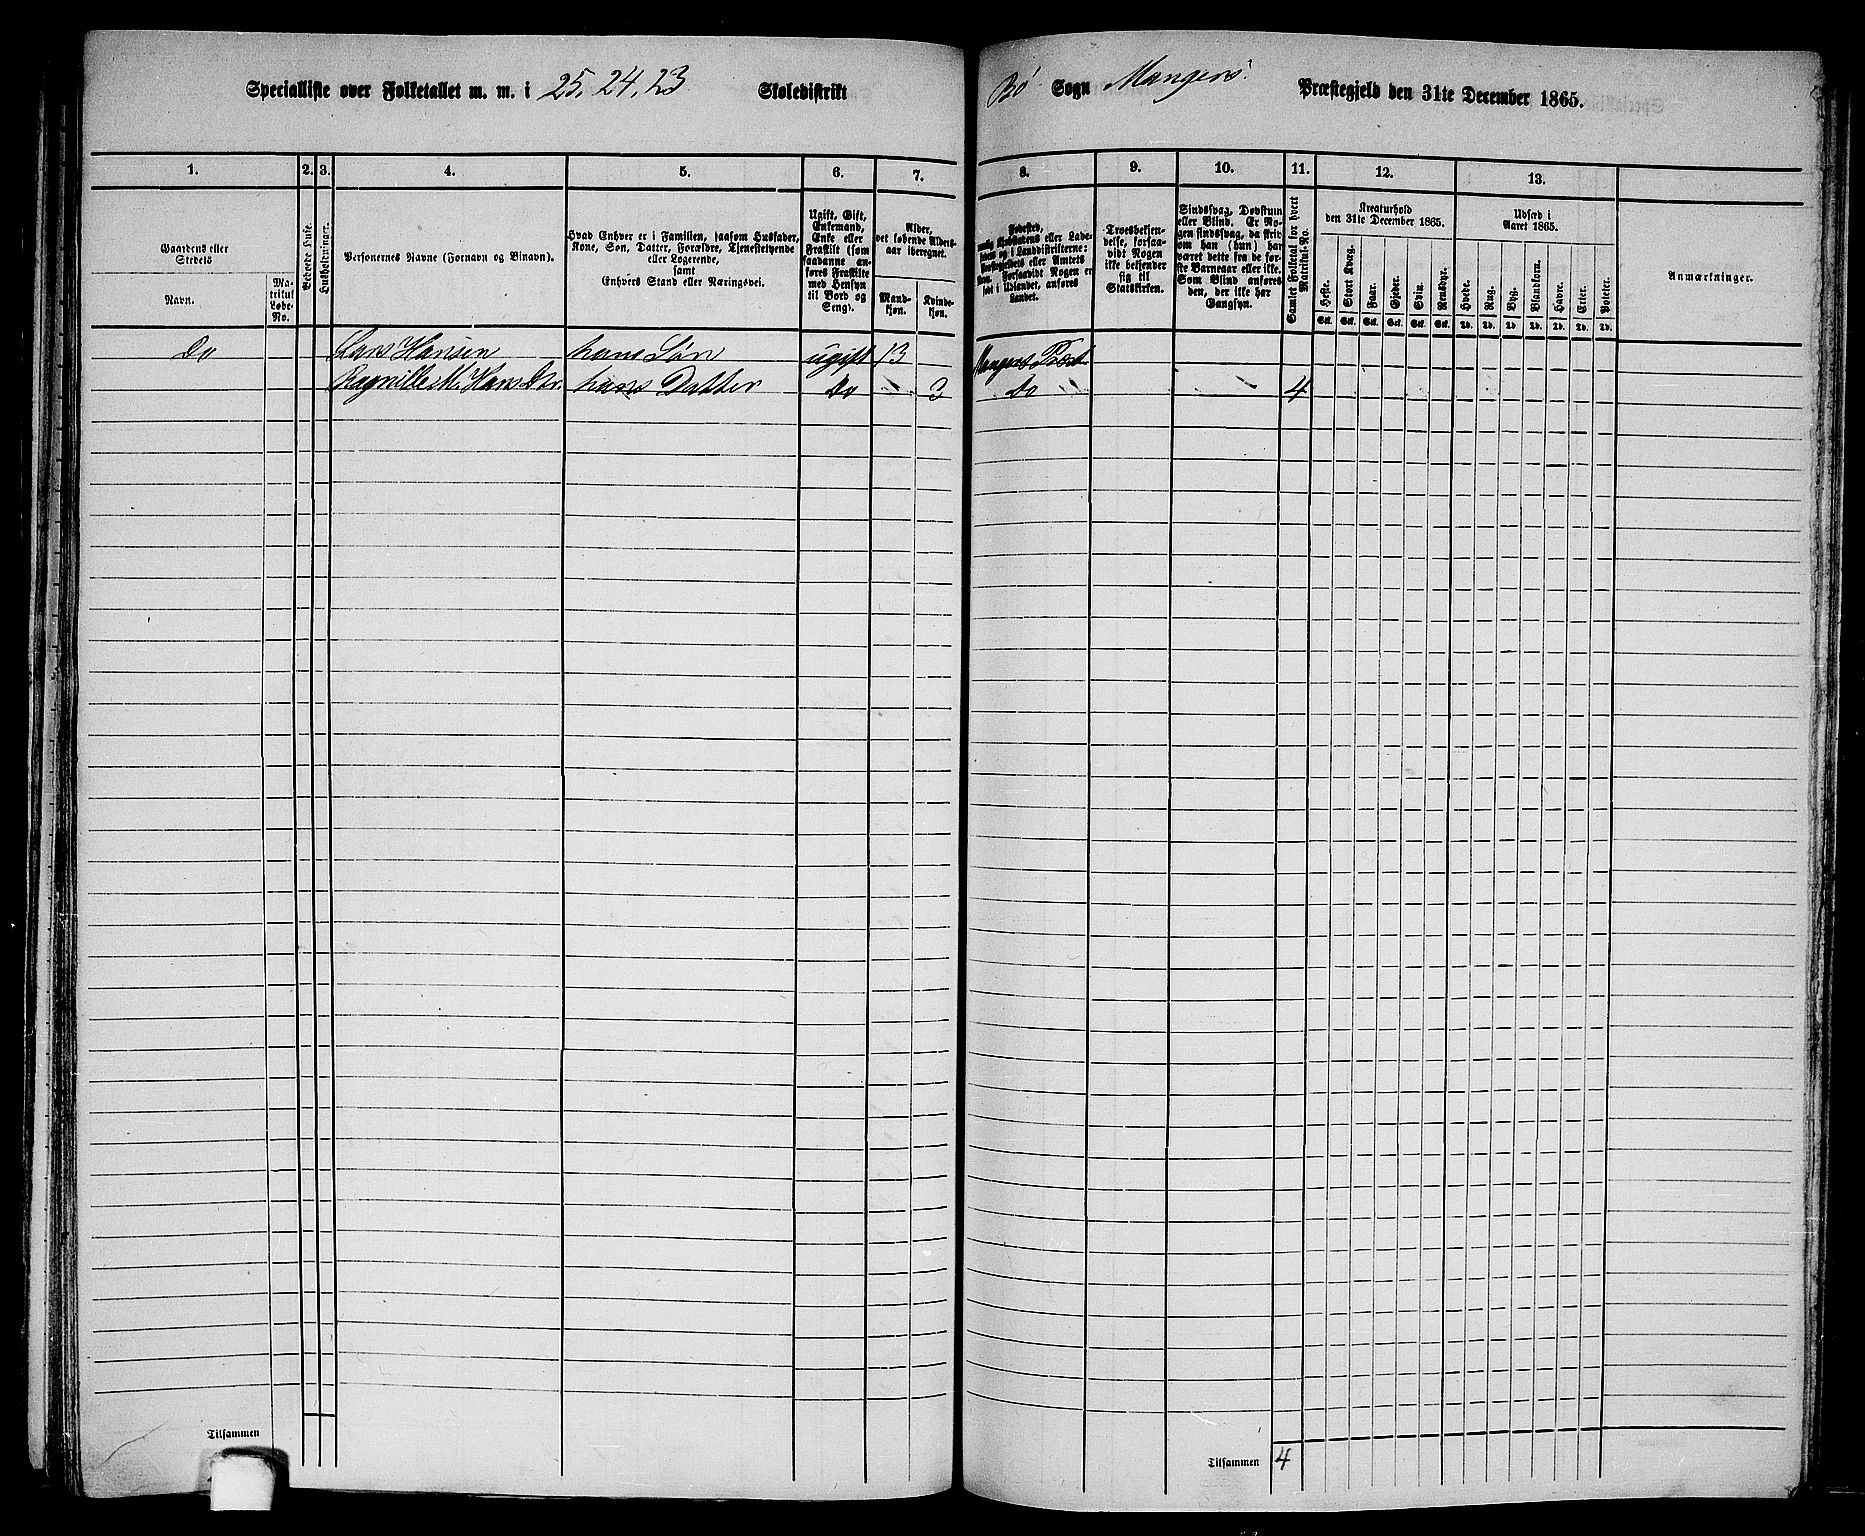 Specialliste over Folketallet m. m. i 25, 24, 23 Skoledistrikt Bø Sogn Mangers Præstegjeld den 31te December 1865.
1. 2. 3. 4. 5. 6. 7. 8. 9. 10. 11. 12. 13.
Gaardens eller
Stedets
Navn.
Ma-
trikul
Løbe-
No.
Beboede Huse.
Husholdninger.
Personernes Navne (Fornavn og Binavn).
Hvad Enhver er i Familien, saasom Husfader,
Kone, Søn, Datter, Forældre, Tjenestetyende
eller Logerende,
samt
Enhvers Stand eller Næringsvei.
Ugift, Gift,
Enkemand,
Enke eller
Fraskilt (som
saadanne an-
føres Fraskilte
med Hensyn
til Bord og
Seng).
Alder,
det løbende Alders-
aar iberegnet.
Mand-
kjøn.
Kvinde-
kjøn.
Fødested,
Troesbekjen-
delse, forsaa-
vidt Nogen
ikke bekjender
sig til
Statskirken.
Sindssvag, Døvstum
eller Blind. Er No-
gen sindssvag, da skriv
om han (hun) har
været dette fra de før-
ste Barneaar eller ikke.
Som Blind anføres
den, der ikke har
Gangsyn.
Samlet Folketal for hvert
Matrikul-No.
Kreaturhold
den 31te December 1865.
Heste. Stort Kvæg. Faar. Gjeder. Svin. Rensdyr.
Stk. Stk. Stk. Stk. Stk. Stk.
Udsæd i
Aaret 1865.
Hvede. Rug. Byg. Blandkorn. Havre. Erter. Poteter.
Td. Td. Td. Td. Td. Td. Td.
Anmærkninger.
Do Lars Hansen hans Søn ugift 13 Mangers Præst
Ragnille M. Hans Dtr. hans Datter Do 3 Do 4
Tilsammen
Tilsammen 4